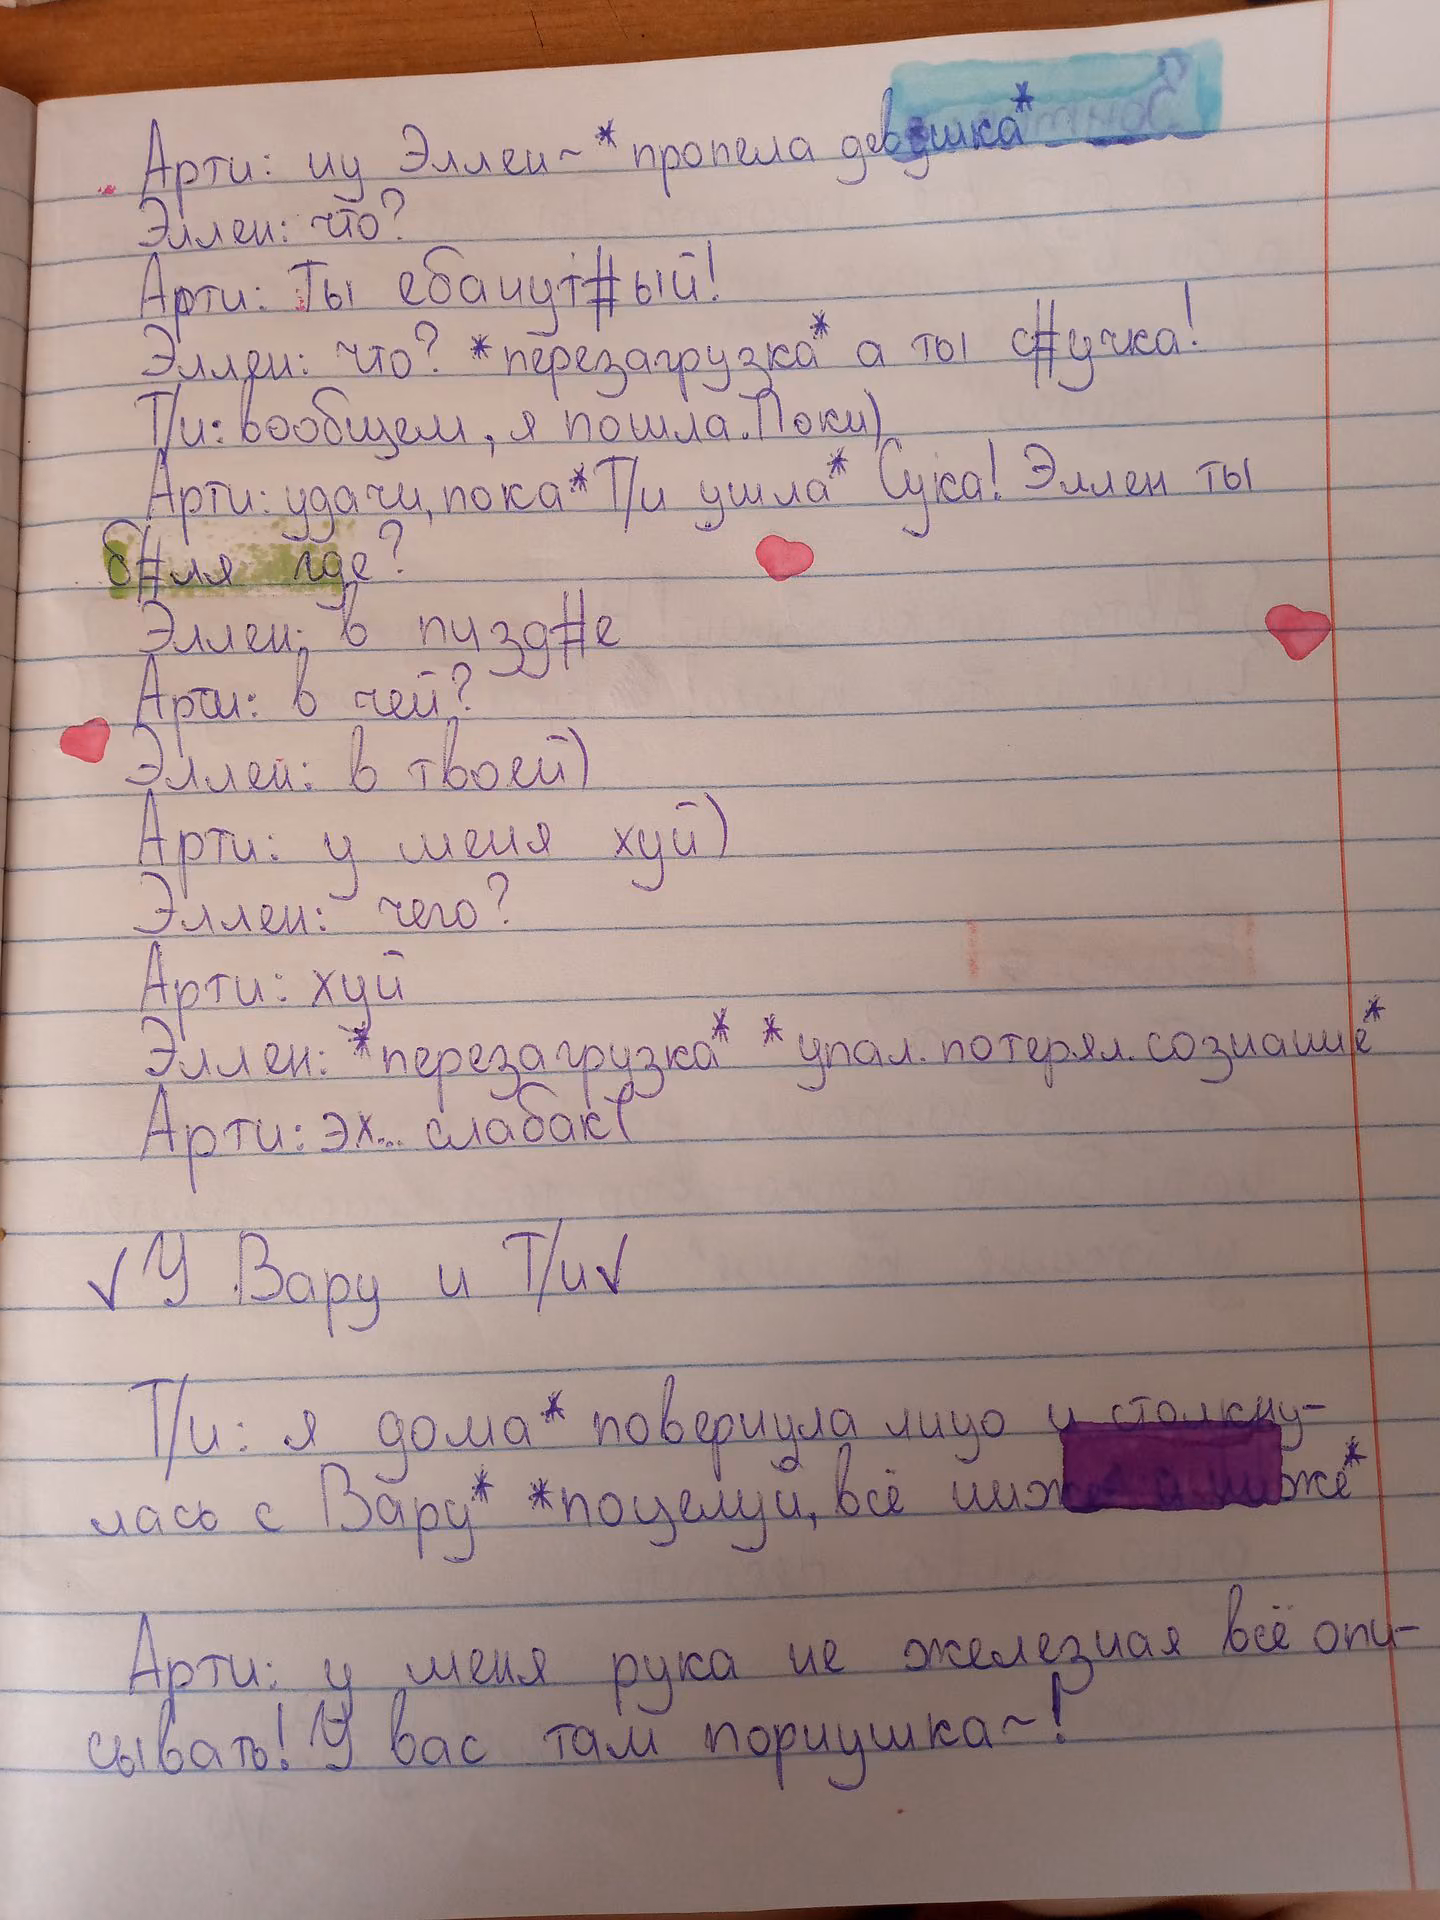 Арти: ну Эллен~ *пропела девушка*
Эллен: что?
Арти: Ты ебанут#ый!
Эллен: что? *перезагрузка* а ты с#учка!
Т/и: вообщем, я пошла. Поки)
Арти: удачи, пока *Т/и ушла* Сука! Эллен ты
б#ля где?
Эллен: в пизд#е
Арти: в чей?
Эллен: в твоей)
Арти: у меня хуй)
Эллен: чего?
Арти: хуй
Эллен: *перезагрузка* *упал. потерял. сознание*
Арти: эх... слабак(
✓У Вару и Т/и✓
Т/и: я дома *повернула лицо и столкну-
лась с Вару* *поцелуй, всё ниже и ниже*
Арти: у меня рука не железная всё опи-
сывать! У вас там порнушка~!